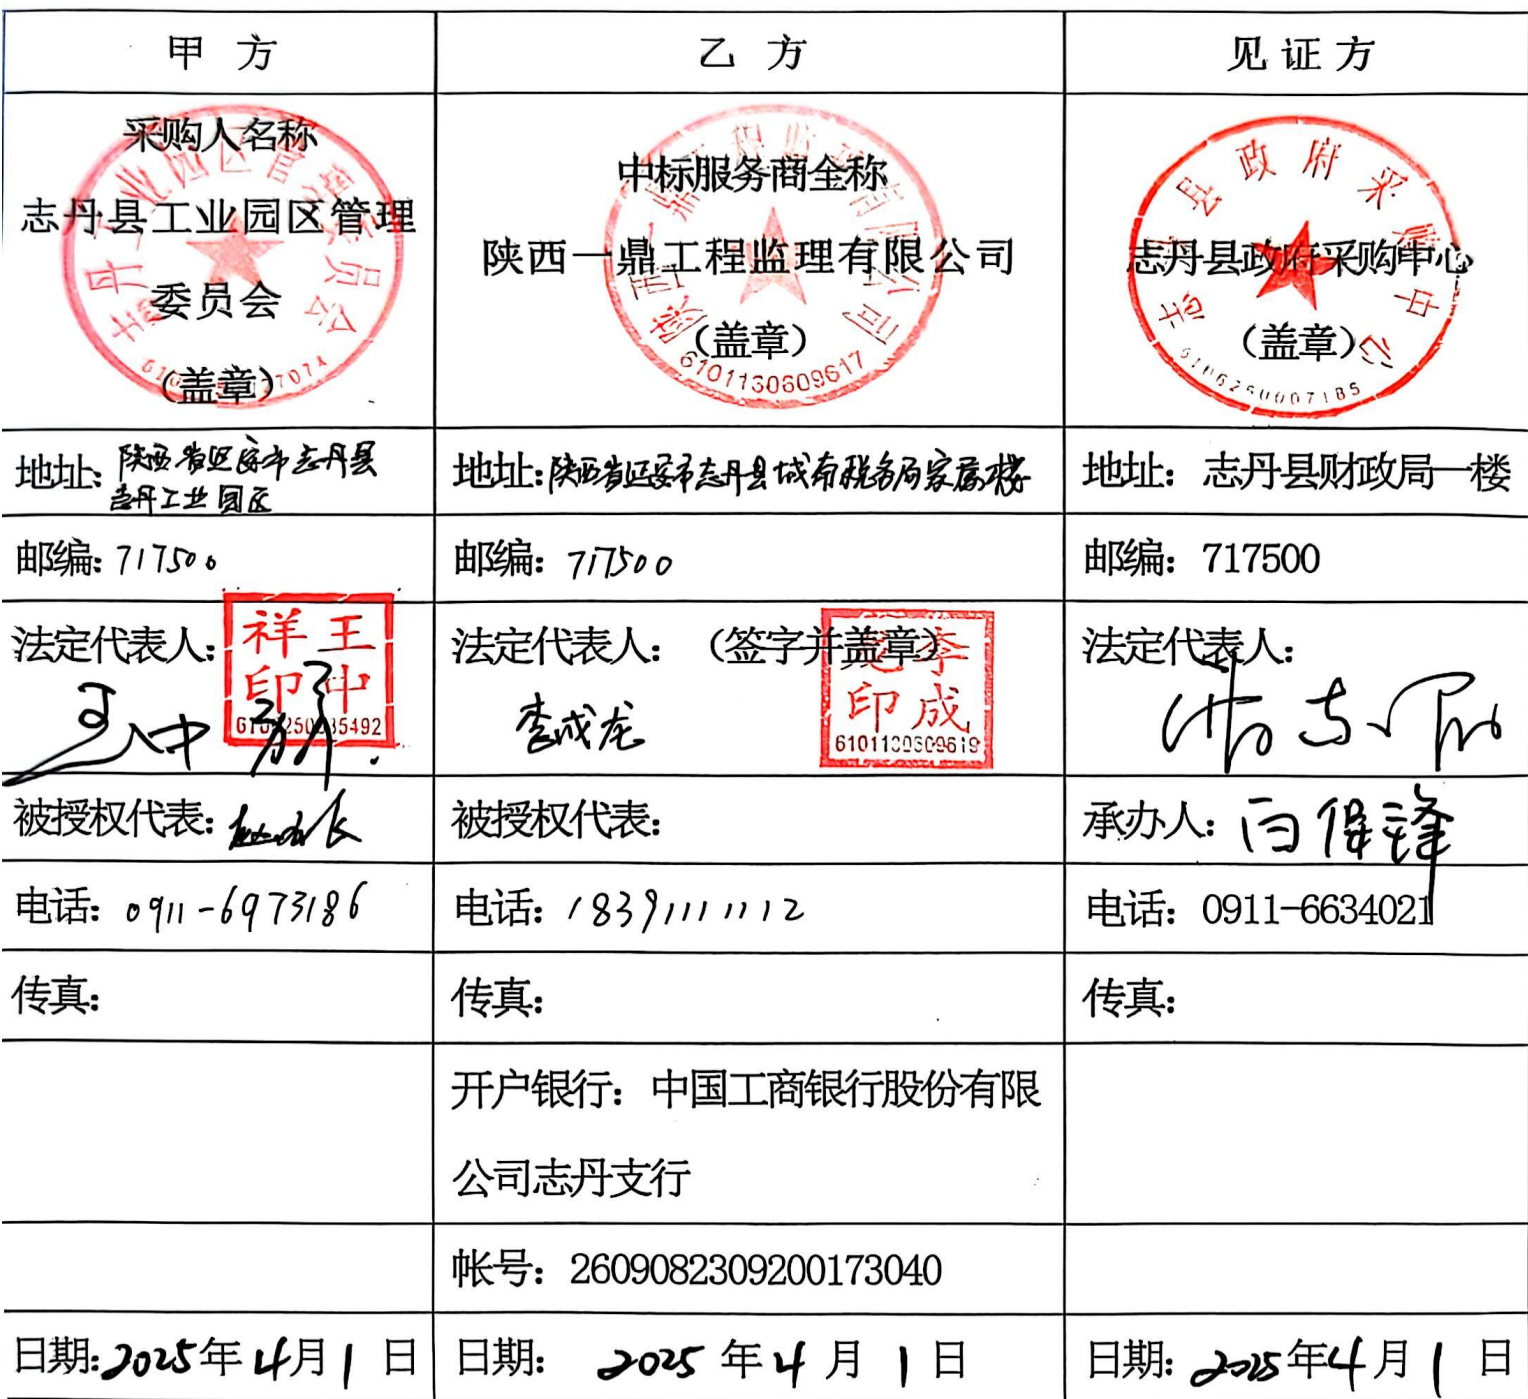 甲方 乙方 见证方
采购人名称
志丹县工业园区管理
委员会
（盖章）
中标服务商全称
陕西一鼎工程监理有限公司
（盖章）
6101130609617
志丹县政府采购中心
（盖章）
志丹县政府采购中心
6106250007185
地址：陕西省延安市志丹县
志丹工业园区
地址：陕西省延安市志丹县城南税务局家属楼
地址：志丹县财政局一楼
邮编：717500
邮编：717500
邮编：717500
法定代表人：
王中祥印
王中
法定代表人：（签字并盖章）
李成龙
李成龙印
法定代表人：
被授权代表：
被授权代表：
承办人：白保锋
电话：0911-6973186
电话：18391111112
电话：0911-6634021
传真：
传真：
传真：
开户银行：中国工商银行股份有限
公司志丹支行
帐号：2609082309200173040
日期：2025年4月1日
日期：2025年4月1日
日期：2025年4月1日